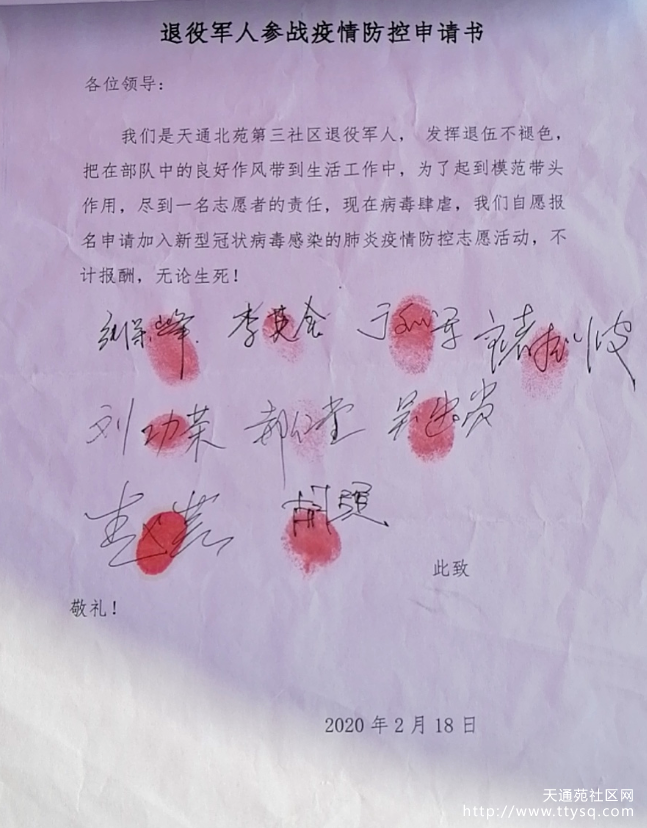 退役军人参战疫情防控申请书
各位领导：
我们是天通北苑第三社区退役军人， 发挥退伍不褪色，
把在部队中的良好作风带到生活工作中，为了起到模范带头
作用，尽到一名志愿者的责任，现在病毒肆虐，我们自愿报
名申请加入新型冠状病毒感染的肺炎疫情防控志愿活动，不
计报酬，无论生死！
李英金
刘功荣
此致
敬礼！
2020 年 2 月 18 日
天通苑社区网
http://www.ttysq.com